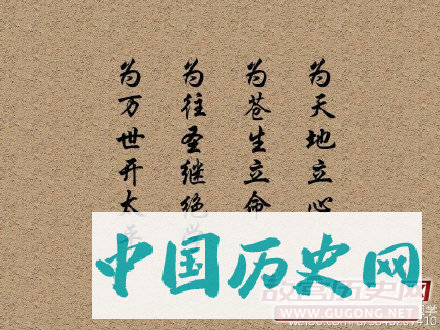 为天地立心
为苍生立命
为往圣继绝学
为万世开太平
中国历史网
故宫历史网
WWW.GUGONG.NET